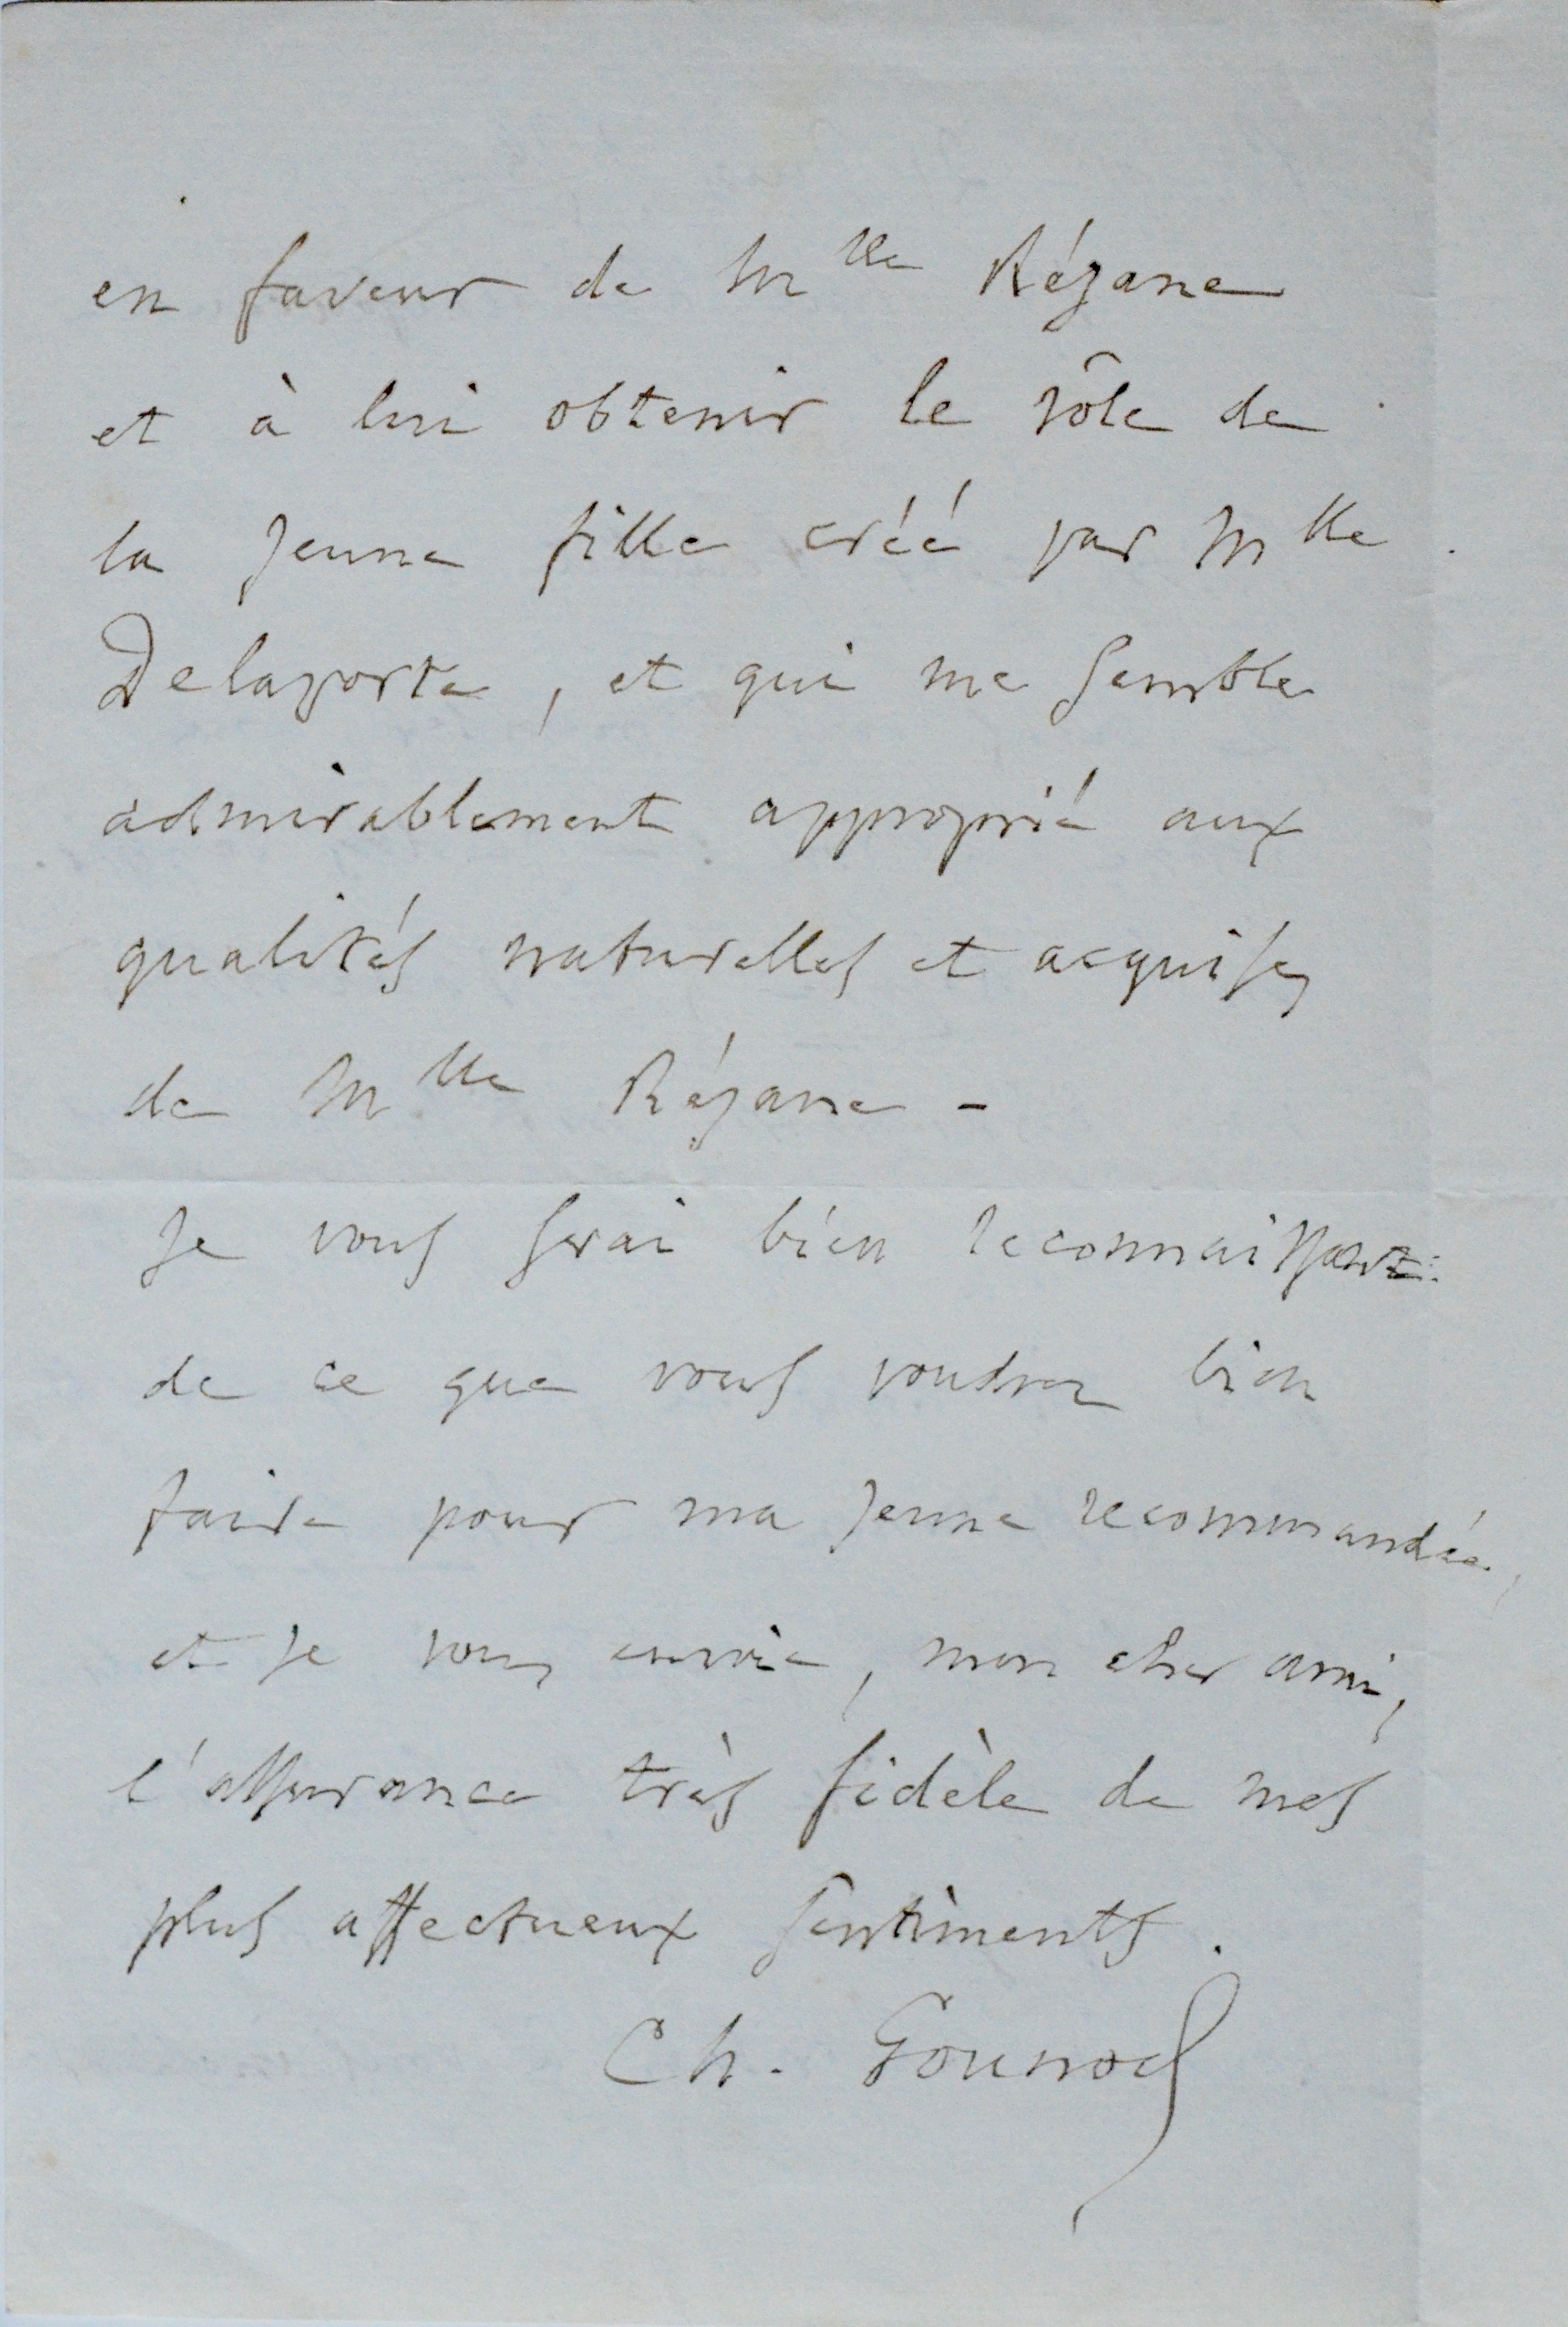 en faveur de Mlle Réjane
et à lui obtenir le rôle de
la jeune fille créé par Mlle
Delaporte, et qui me semble
admirablement approprié aux
qualités naturelles et acquises
de Mlle Réjane -
Je vous serai bien reconnaissant
de ce que vous voudrez bien
faire pour ma jeune recommandée,
et je vous envoie, mon cher ami,
l'assurance très fidèle de mes
plus affectueux sentiments.
Ch. Gounod